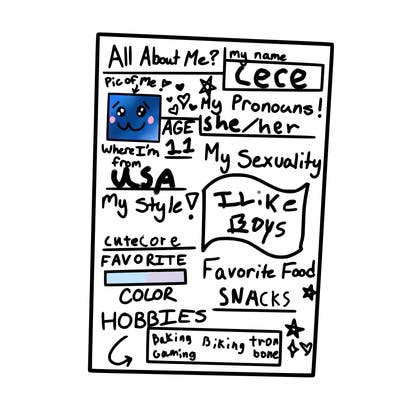 All About Me?
my name
Cece
Pic of Me!
My Pronouns!
she/her
AGE
11
Where I'm
from
USA
My Sexuality
I LiKe
Boys
My Style!
cutecore
FAVORITE
COLOR
Favorite Food
SNACKS
HOBBIES
Baking Biking trom
Gaming bone